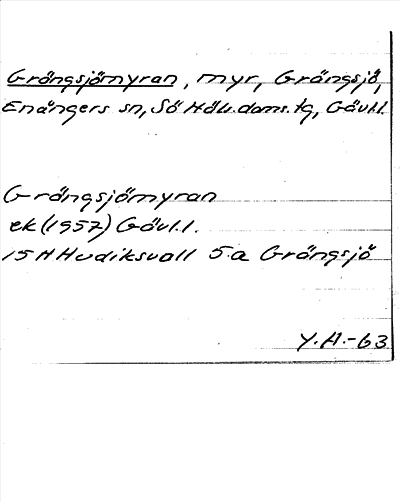 Grängsjömyran, myr, Grängsjö,
Enångers sn, Sö Häls.doms.tg, Gävl.l.
Grängsjömyran
ek (1957) Gävl.l.
15 H Hudiksvall 5.a Grängsjö
Y.H.-63